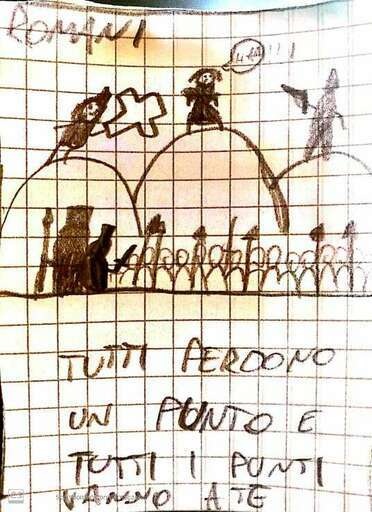 ROMANI
TUTTI PERDONO
UN PUNTO E
TUTTI I PUNTI
VANNO A TE